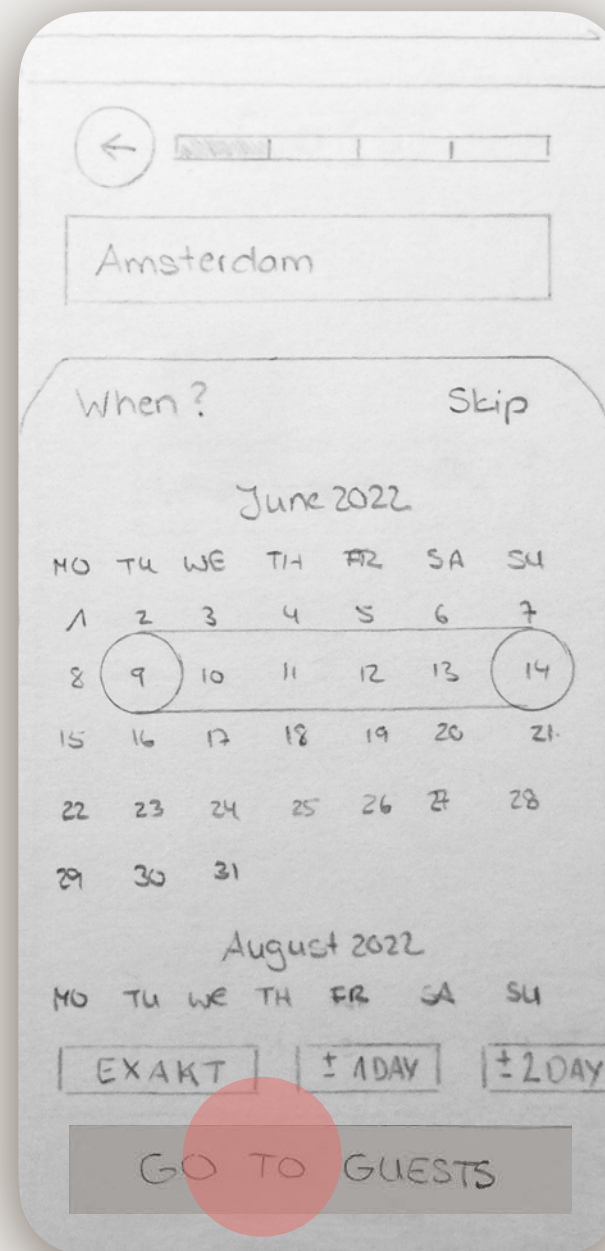 Amsterdam
When? Skip
June 2022
MO TU WE TH FR SA SU
1 2 3 4 5 6 7
8 9 10 11 12 13 14
15 16 17 18 19 20 21
22 23 24 25 26 27 28
29 30 31
August 2022
MO TU WE TH FR SA SU
EXAKT ±1DAY ±2DAY
GO TO GUESTS